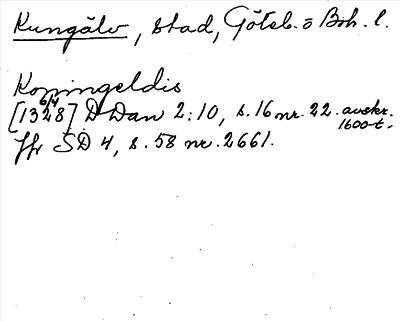 Kungälv, stad, Göteb. o Boh. l.
Koningeldis
[1328] 6/4 D Dan 2:10, s. 16 nr. 22. avskr. 1600-t.
Jfr SD 4, s. 58 nr. 2661.